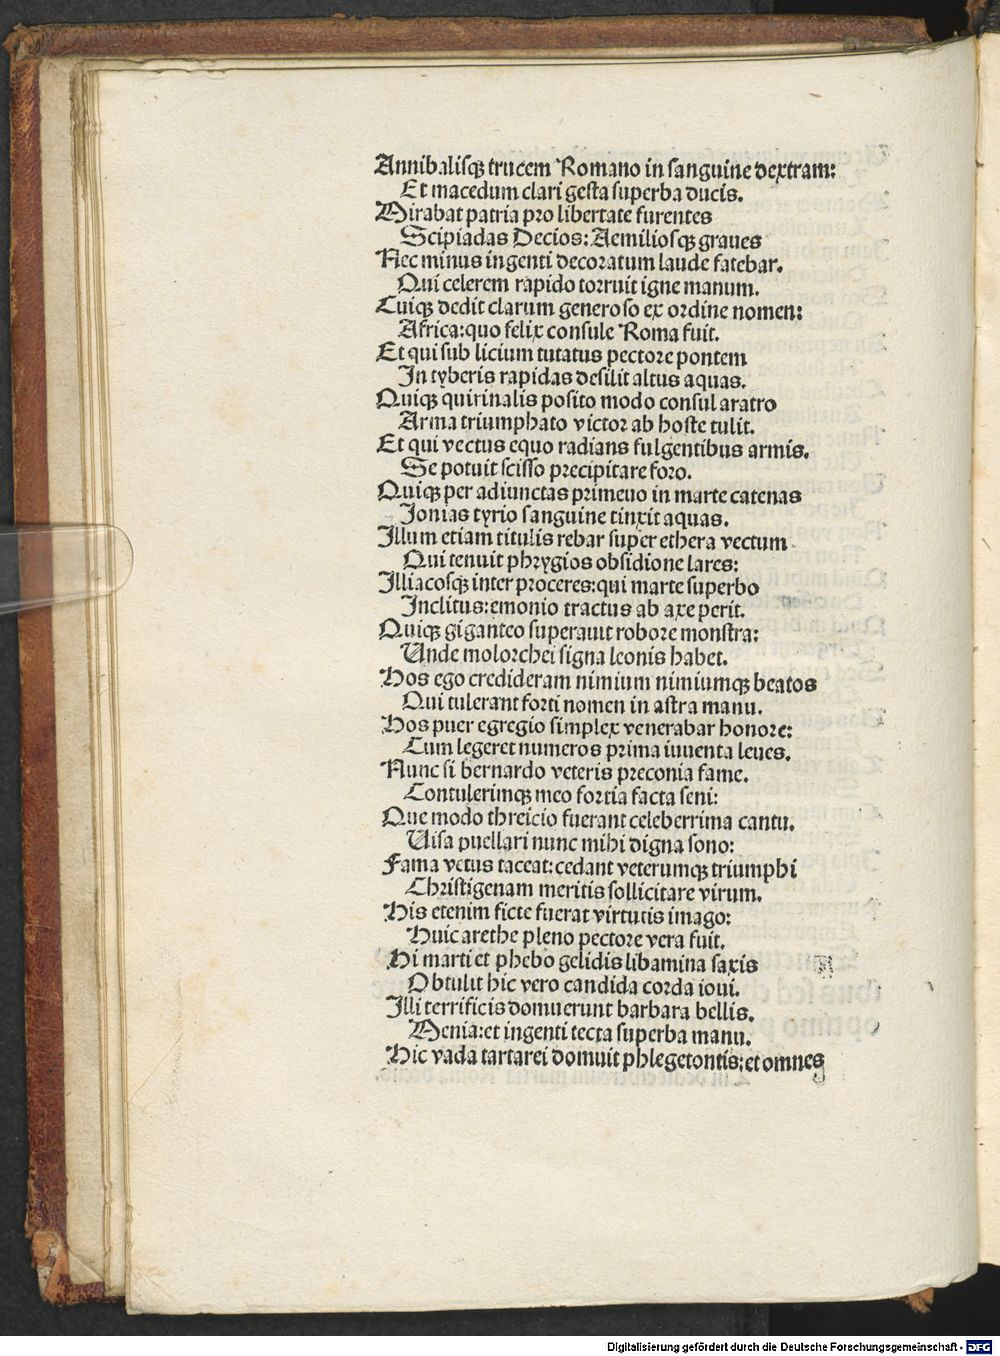 Annibalisq; trucem Romano in sanguine dextram:
Et macedum clari gesta superba ducis.
Mirabat patria pro libertate furentes
Scipiadas Decios: Aemiliosq; graues
Nec minus ingenti decoratum laude fatebar.
Qui celerem rapido torruit igne manum.
Cuiq; dedit clarum generoso ex ordine nomen:
Africa: quo felix consule Roma fuit.
Et qui sub licium tutatus pectore pontem
In tyberis rapidas desilit altus aquas.
Quiq; quirinalis posito modo consul aratro
Arma triumphato victor ab hoste tulit.
Et qui vectus equo radians fulgentibus armis.
Se potuit scisso precipitare foro.
Quiq; per adiunctas primeuo in marte catenas
Jonias tyrio sanguine tinxit aquas.
Illum etiam titulis rebar super ethera vectum
Qui tenuit phrygios obsidione lares:
Illiacosq; inter proceres: qui marte superbo
Inclitus: emonio tractus ab axe perit.
Quiq; giganteo superauit robore monstra:
Unde molorchei signa leonis habet.
Hos ego credideram nimium nimiumq; beatos
Qui tulerant forti nomen in astra manu.
Hos puer egregio simplex venerabar honore:
Cum legeret numeros prima iuuenta leues.
Nunc si bernardo veteris preconia fame.
Contulerimq; meo fortia facta seni:
Que modo threicio fuerant celeberrima cantu.
Uisa puellari nunc mihi digna sono:
Fama vetus taceat: cedant veterumq; triumphi
Christigenam meritis sollicitare virum.
His etenim ficte fuerat virtutis imago:
Huic arethe pleno pectore vera fuit.
Hi marti et phebo gelidis libamina saxis
Obtulit hic vero candida corda ioui.
Illi terrificis domuerunt barbara bellis.
Menia: et ingenti tecta superba manu.
Hic vada tartarei domuit phlegetontis: et omnes
Digitalisierung gefördert durch die Deutsche Forschungsgemeinschaft - DFG